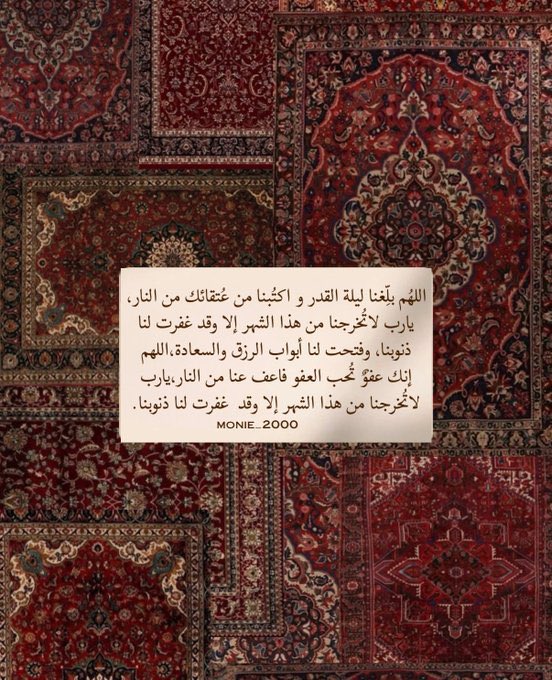 اللهُم بلِّغنا ليلة القدر و اكتُبنا من عُتقائك من النار،
يارب لاتُخرجنا من هذا الشهر إلا وقد غفرت لنا
ذنوبنا، وفتحت لنا أبواب الرزق والسعادة،اللهم
إنك عفوٌ تُحب العفو فاعف عنا من النار،يارب
لاتُخرجنا من هذا الشهر إلا وقد غفرت لنا ذنوبنا.
MONIE_2000